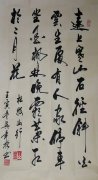 遠上寒山石径斜白
雲生處有人家停車
坐愛楓林晚霜葉紅
於二月花
杜牧
山行